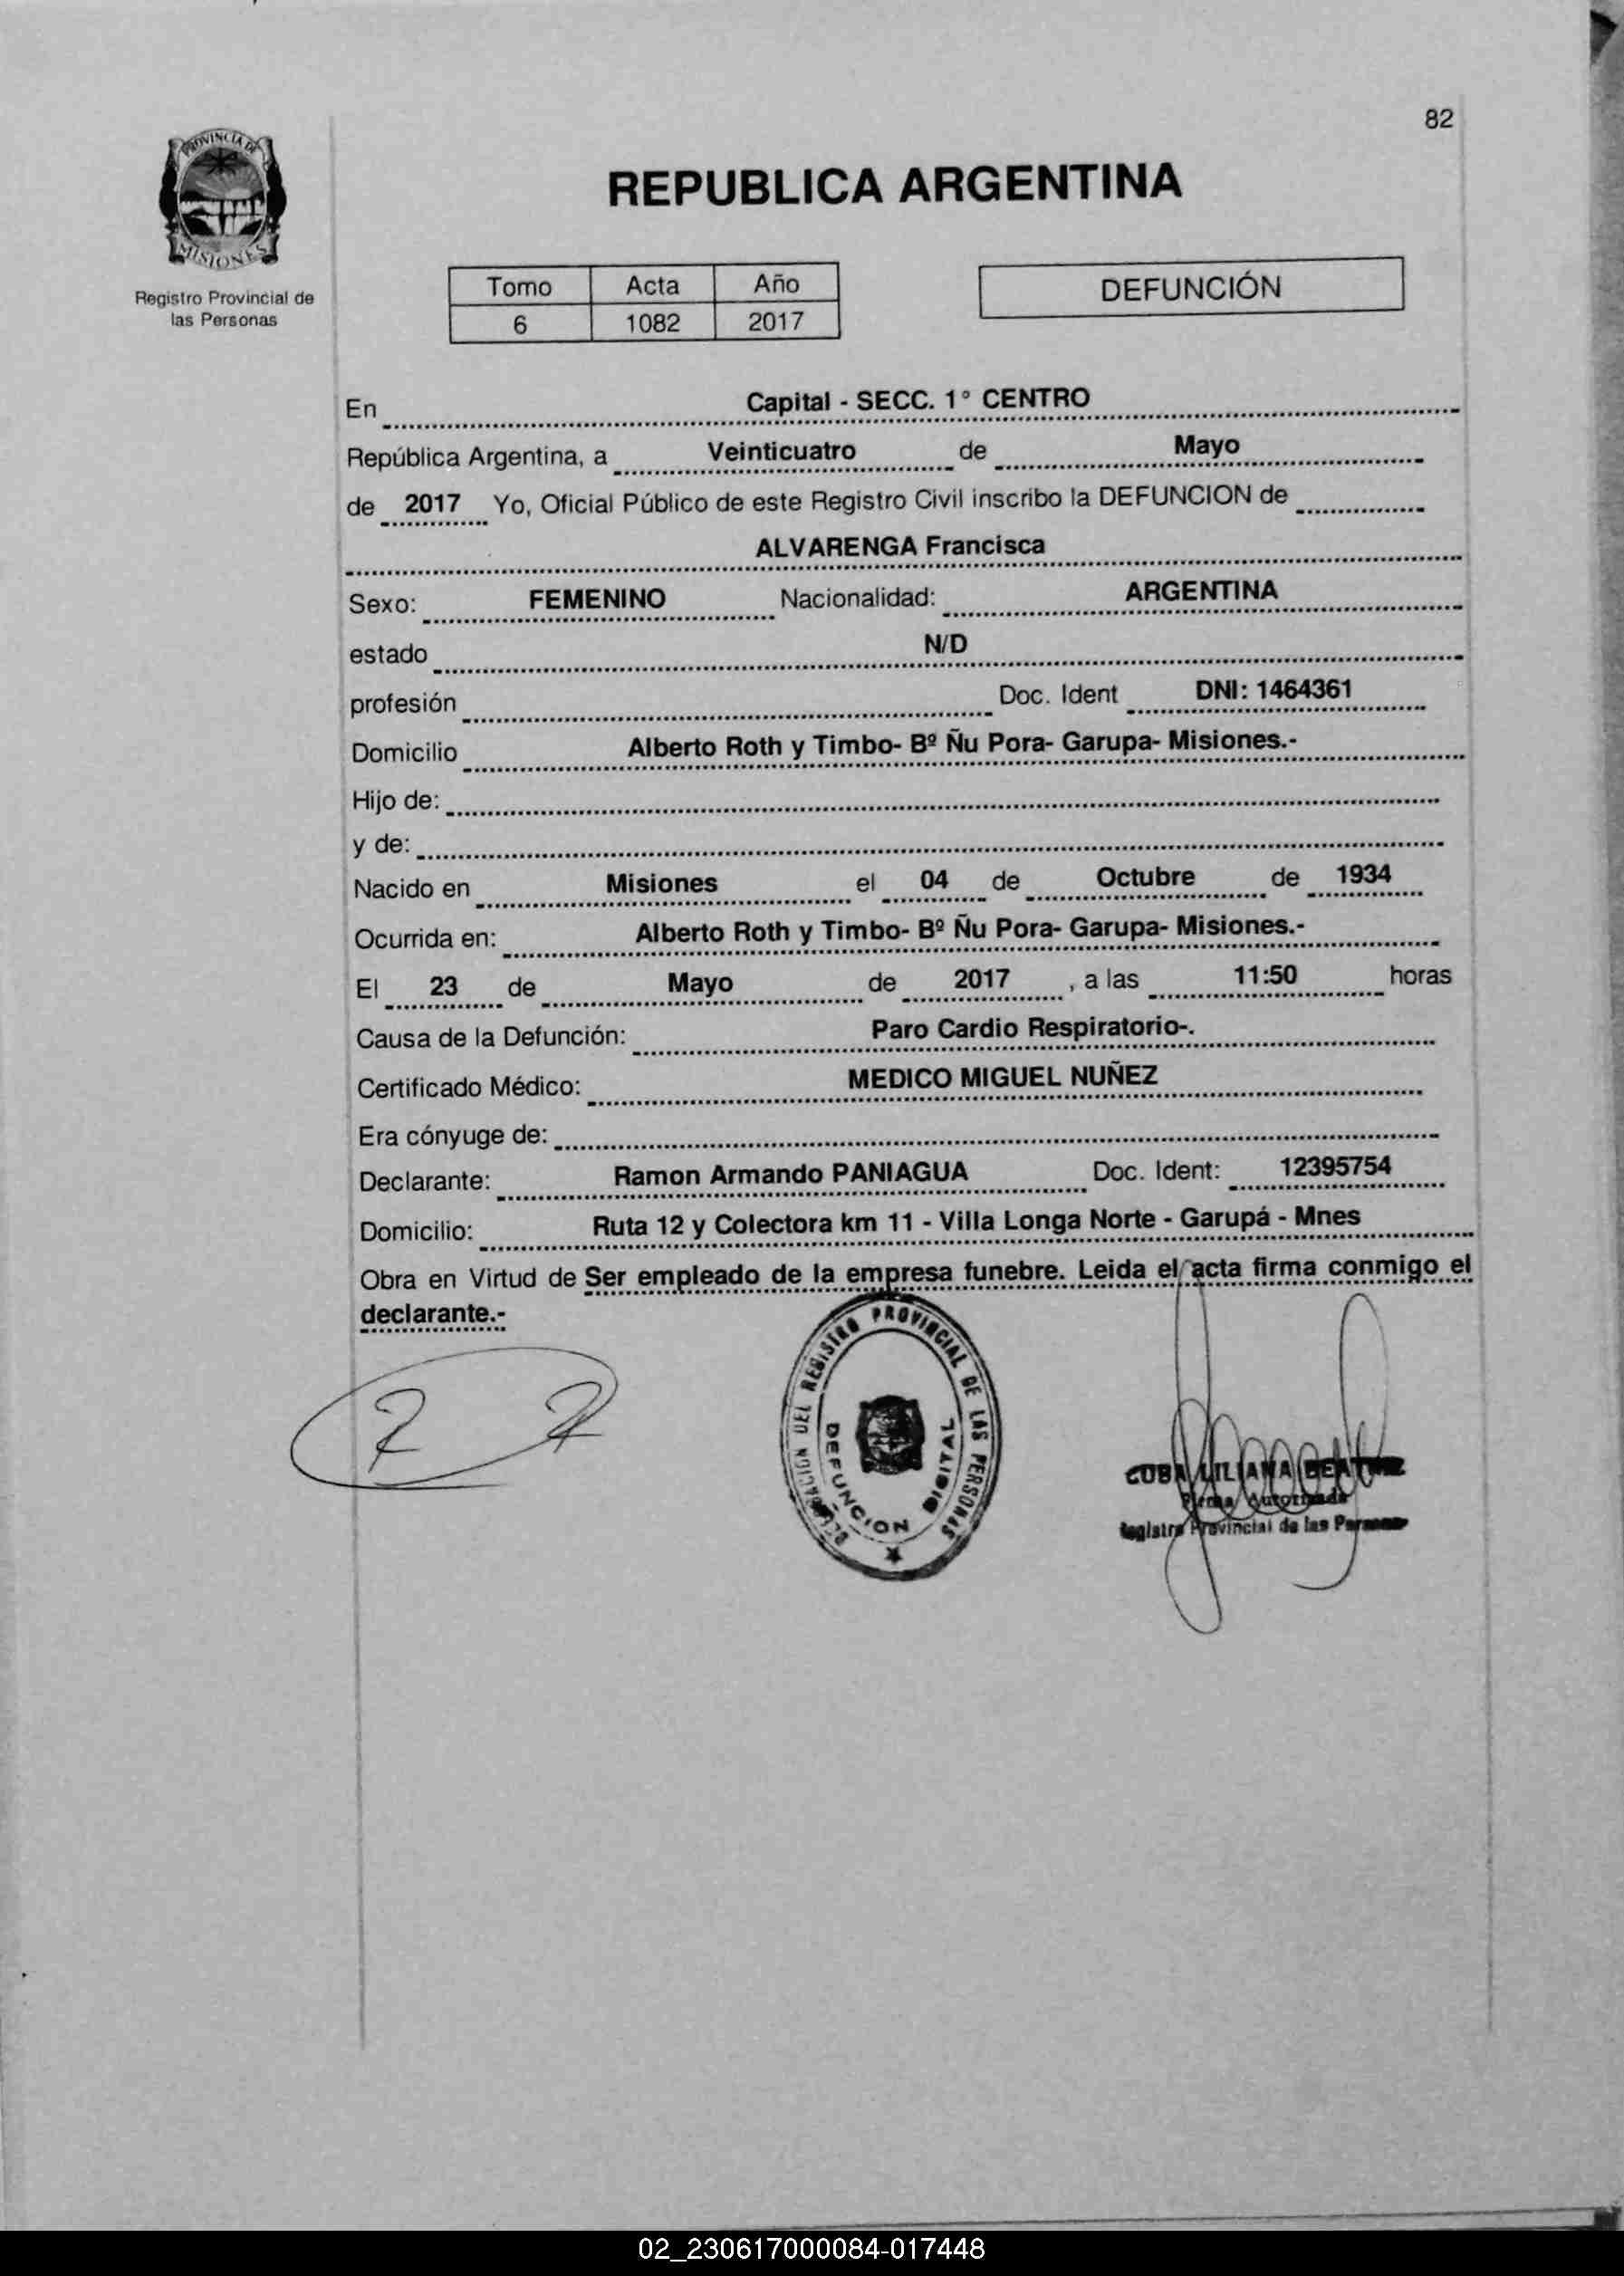 82
PROVINCIA DE
MISIONES
Registro Provincial de
las Personas
REPUBLICA ARGENTINA
Tomo Acta Año
6 1082 2017
DEFUNCIÓN
En Capital - SECC. 1° CENTRO
República Argentina, a Veinticuatro de Mayo
de 2017 Yo, Oficial Público de este Registro Civil inscribo la DEFUNCION de
ALVARENGA Francisca
Sexo: FEMENINO Nacionalidad: ARGENTINA
estado N/D
profesión Doc. Ident DNI: 1464361
Domicilio Alberto Roth y Timbo- Bº Ñu Pora- Garupa- Misiones.-
Hijo de:
y de:
Nacido en Misiones el 04 de Octubre de 1934
Ocurrida en: Alberto Roth y Timbo- Bº Ñu Pora- Garupa- Misiones.-
El 23 de Mayo de 2017 , a las 11:50 horas
Causa de la Defunción: Paro Cardio Respiratorio-.
Certificado Médico: MEDICO MIGUEL NUÑEZ
Era cónyuge de:
Declarante: Ramon Armando PANIAGUA Doc. Ident: 12395754
Domicilio: Ruta 12 y Colectora km 11 - Villa Longa Norte - Garupá - Mnes
Obra en Virtud de Ser empleado de la empresa funebre. Leida el acta firma conmigo el
declarante.-
DEL REGISTRO PROVINCIAL DE LAS PERSONAS
DEFUNCION DIGITAL
CUBA LILIANA BEATRIZ
Firma Autorizada
Registro Provincial de las Personas
02_230617000084-017448